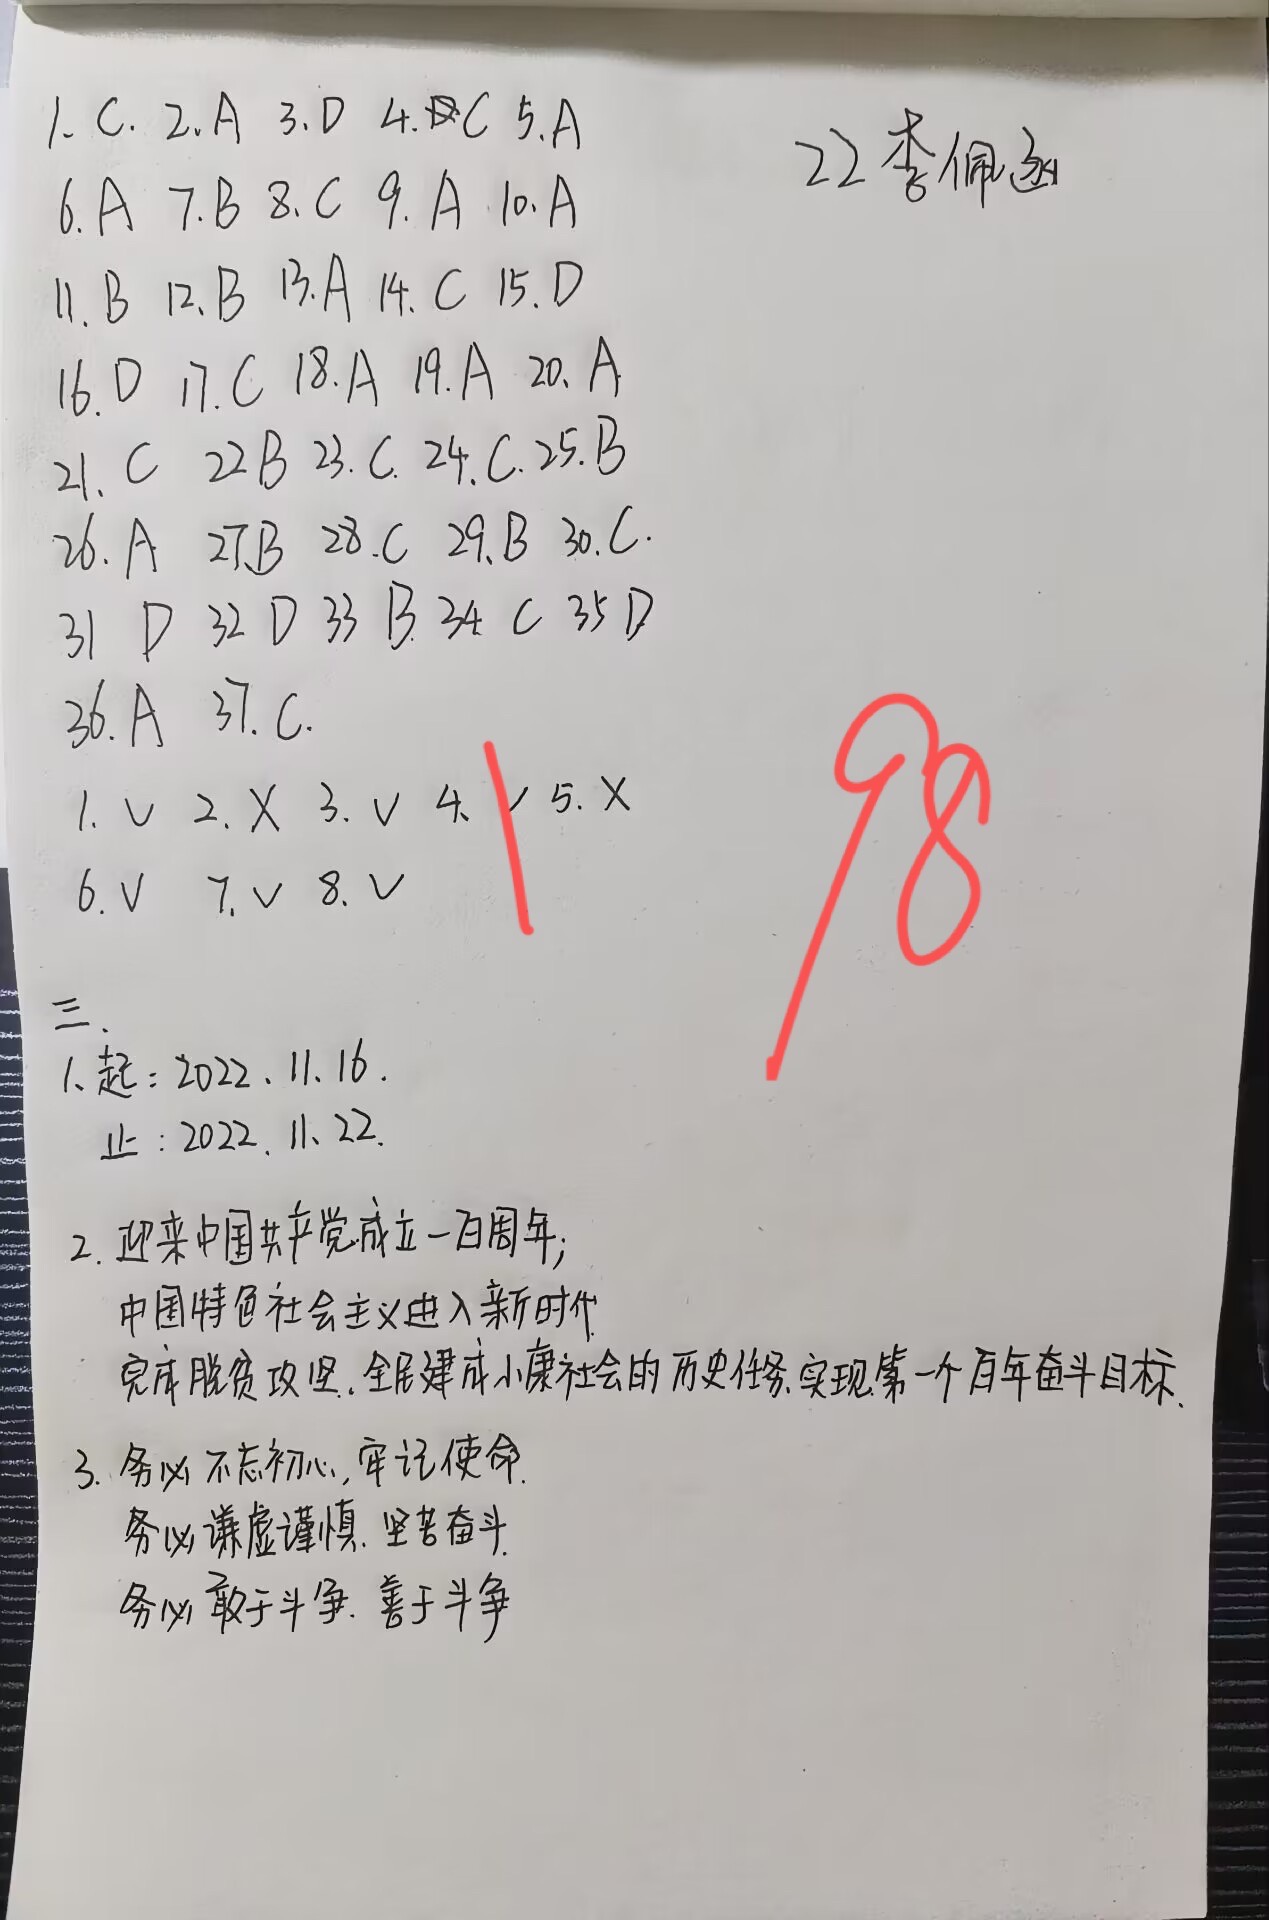 1. C. 2. A 3. D 4. C 5. A
22 李佩
6. A 7. B 8. C 9. A 10. A
11. B 12. B 13. A 14. C 15. D
16. D 17. C 18. A 19. A 20. A
21. C 22 B 23. C. 24. C. 25. B
26. A 27. B 28. C 29. B 30. C.
31 D 32 D 33 B 34 C 35 D
36. A 37. C.
98
1. √ 2. X 3. √ 4. √ 5. X
6. √ 7. √ 8. √
三.
1. 起: 2022. 11. 16.
止: 2022. 11. 22.
2. 迎来中国共产党成立一百周年;
中国特色社会主义进入新时代
完成脱贫攻坚、全民建成小康社会的历史任务、实现第一个百年奋斗目标.
3. 务必不忘初心, 牢记使命.
务必谦虚谨慎、坚苦奋斗.
务必敢于斗争、善于斗争